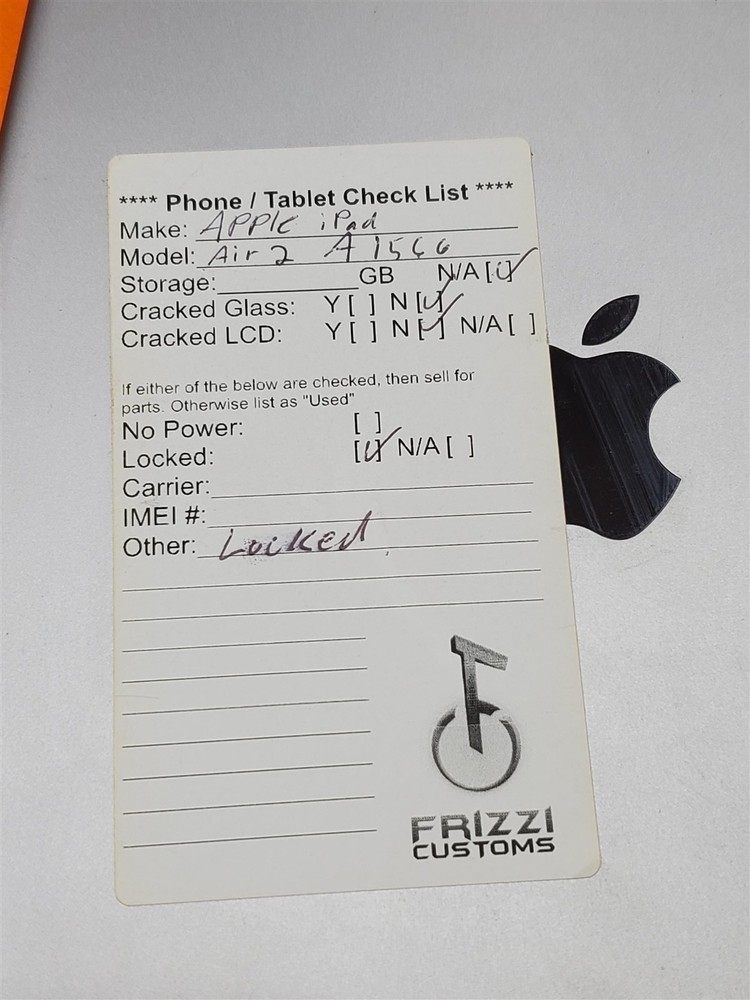 **** Phone / Tablet Check List ****
Make: APPLE iPad
Model: Air 2 A1566
Storage: GB N/A [✓]
Cracked Glass: Y [ ] N [✓]
Cracked LCD: Y [ ] N [✓] N/A [ ]
If either of the below are checked, then sell for
parts. Otherwise list as "Used"
No Power: [ ]
Locked: [✓] N/A [ ]
Carrier:
IMEI #:
Other: Locked
FRIZZI
CUSTOMS